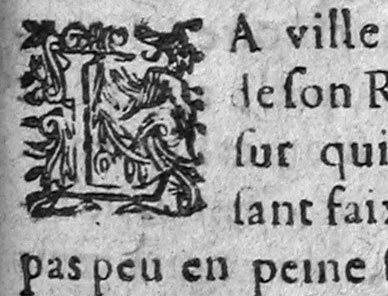 LA ville
de ſon R
ſur qui
ſant faix
pas peu en peine ſ